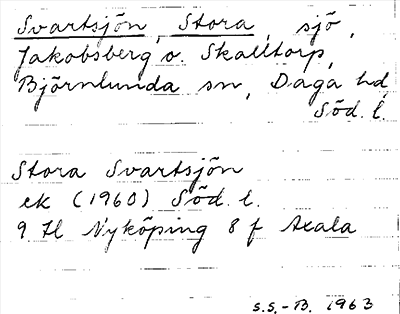 Svartsjön, Stora, sjö,
Jakobsberg o. Skalltorp,
Björnlunda sn, Daga hd,
Söd. l.
Stora Svartsjön
ek (1960) Söd. l.
9 H Nyköping 8 f Axala
S.S.-B. 1963